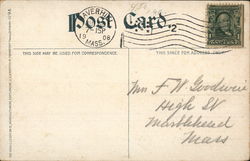 Post Card.
HAVERHILL
7-15P
1908
MASS.
THIS SIDE MAY BE USED FOR CORRESPONDENCE.
THIS SPACE FOR ADDRESS ONLY.
Mrs F W Goodwin
High St
Marblehead
Mass